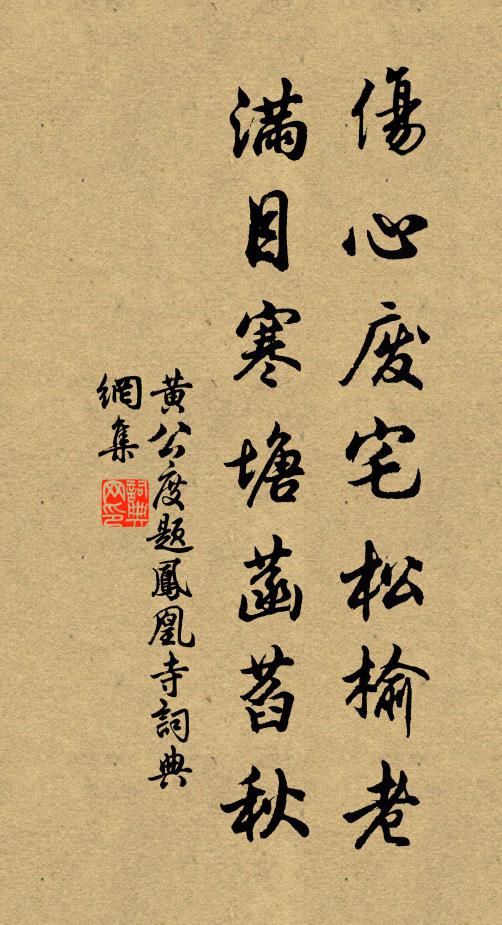 傷心废宅松榆老
滿目寒塘菡萏秋
黄公度题鳳凰寺詞典
網集
詞典
网印